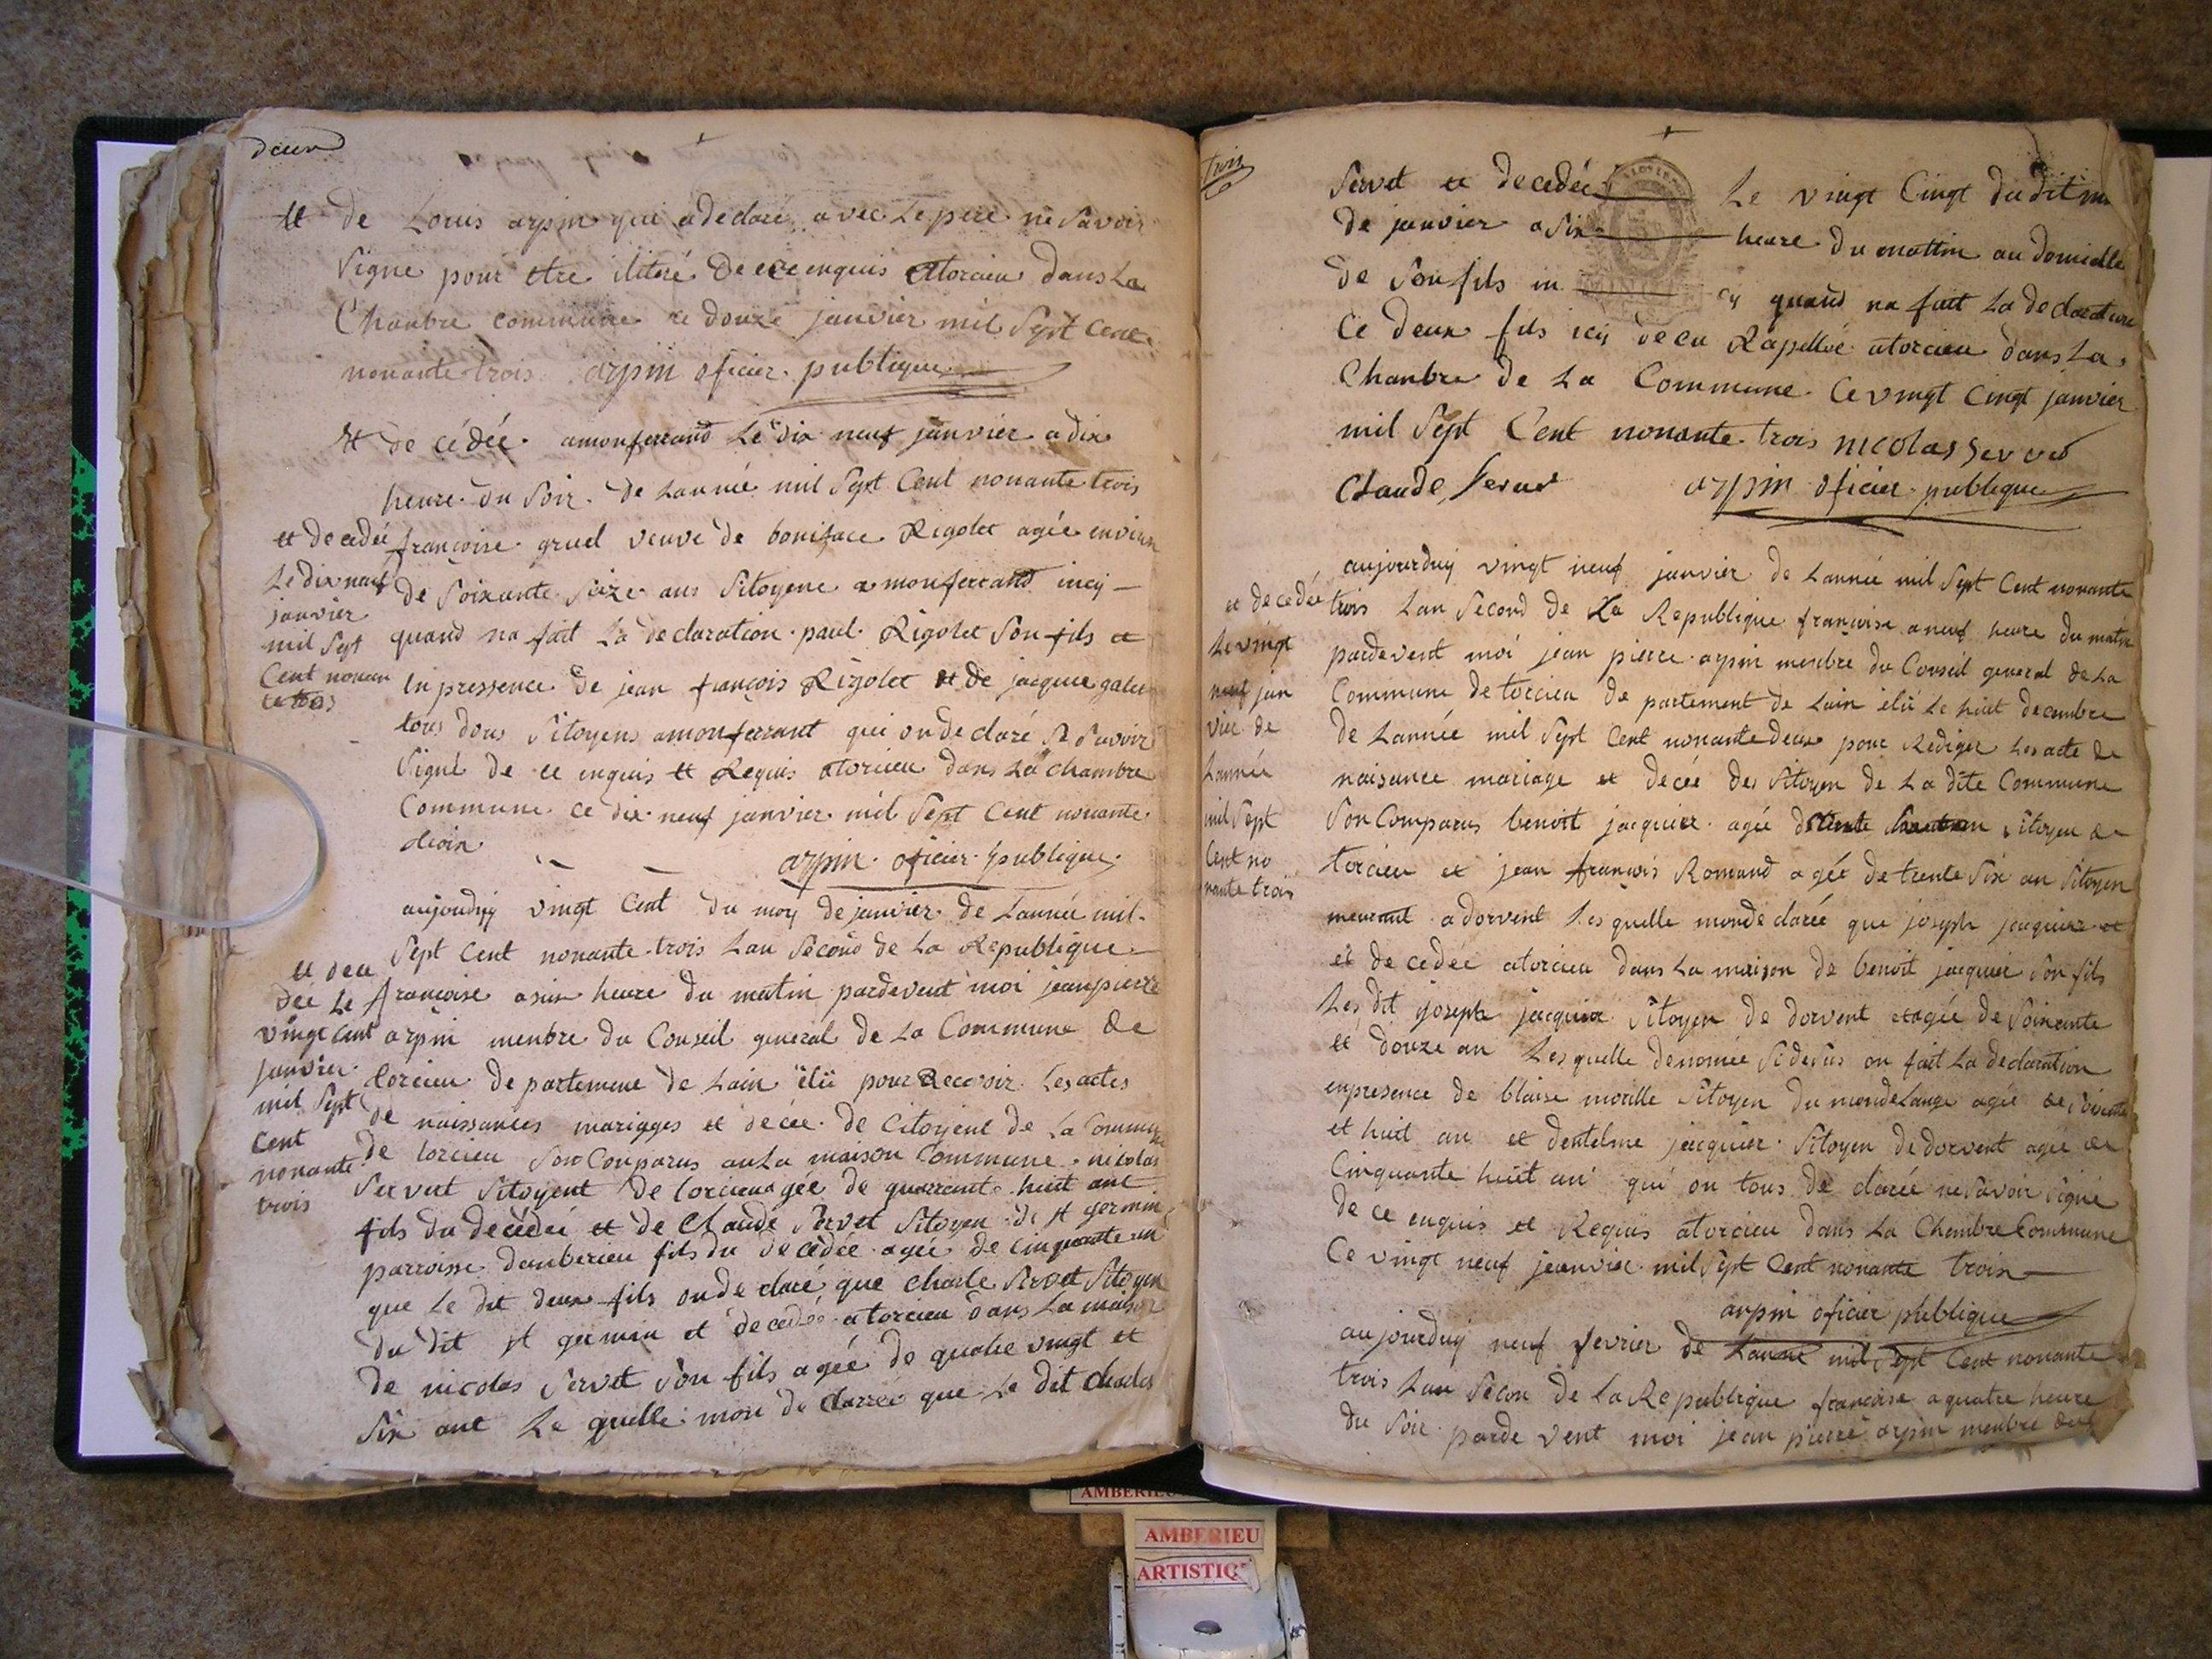 deux
et de Louis arpin qui a declaré avec le pere ne savoir
signe pour etre iliteré de ce enquis atorcieu dans La
Chanbre commune ce douze janvier mil sept Cent
nonante trois arpin oficier publique
et de cédée amonferrand Le dix neuf janvier a dix
heure du soir de Lannée mil sept Cent nonante trois
et decedée
Le dix neuf
janvier
mil sept
Cent nonan
te trois
françoise gruel veuve de boniface Rigolet agée environ
de soixante seize ans sitoyene a monferrand incy
quand na fait La declaration paul Rigolet son fils et
In pressence de jean françois Rigolet et de jacque galet
tous dous sitoyens amonferrant qui on de claré ne savoir
signé de ce enquis et Requis atorcieu dans La chambre
Commune ce dix neuf janvier mil sept Cent nonante
troix
arpin oficier publique
aujourduy vingt Cent du moy de janvier de Lannée mil
sept Cent nonante trois Lan second de La Republique
et dece
dée Le
vingt Cent
janvier
mil sept
Cent
nonante
trois
françoise a six heure du matin pardevent moi jean pierre
arpin menbre du Conseil general de La Commune de
torcieu de partement de Lain élü pour Recevoir Les actes
de naissances mariages et décée de Citoyent de La Commune
de torcieu son Conparus au La maison Commune nicolas
servet sitoyent de torcieu agée de quarrante huit ant
fils du decédeé et de Claude servet sitoyen de st germin
parroisse danberieu fils du decédée ageé de cinquante un
que Le dit deux fils on de claré que charle servet sitoyen
du dit st germin et décedée atorcieu dans La maison
de nicolas servet son fils agée de quatre vingt et
six ant Le quelle mon de clarrée que Le dit charles
trois
servet et decedée Le vingt Cingt du dit m
de janvier a six heure du mattin au domicille
de son fils in cy quand na fait La declaration
Ce deux fils icy de ca Rapellée atorcieu dans La
Chanbre de La Commune Ce vingt Cingt janvier
mil sept Cent nonante trois nicolas servet
Claude servet arpin oficier publique
aujourduy vingt neuf janvier de Lannée mil sept Cent nonante
et decedée
Le vingt
neuf jan
vier de
Lannée
mil sept
Cent no
nante trois
trois Lan second de La Republique françoise a neuf heure du matin
pardevent moi jean pierre arpin menbre du Conseil general de La
Commune de torcieu de partement de Lain élü Le huit decenbre
de Lannée mil sept Cent nonante deux pour Rediger Les acte de
naisance mariage et decée des sitoyen de La dite Commune
son Comparus benoit jacquier agée de trente sitoyen de
torcieu et jean françois Romand agée de trente six an sitoyen
meurant adorvent Les quelle monde clarée que joseph jacquier et
et de cedée atorcieu dans La maison de benoit jacquier son fils
Les dit joseph jacquier sitoyen de dorvent et agée de soixante
et douze an Les quelle denomée si desus on fait La declaration
enpresence de blaise morille sitoyen du monde Lange agée de soixante
et huit an et dentelme jacquier sitoyen de dorvent agée de
Cinquante huit an qui on tous de clarée ne savoir signé
de ce enquis et Requis atorcieu dans La Chanbre Commune
Ce vingt neuf jeanvier mil sept Cent nonante troix
arpin oficier publique
aujourduy neuf fevrier de Lannée mil sept Cent nonante
trois Lan secon de La Republique françoise a quatre heure
du soir parde vent moi jean pierre arpin menbre du
AMBERIEU
AMBERIEU
ARTISTIQ